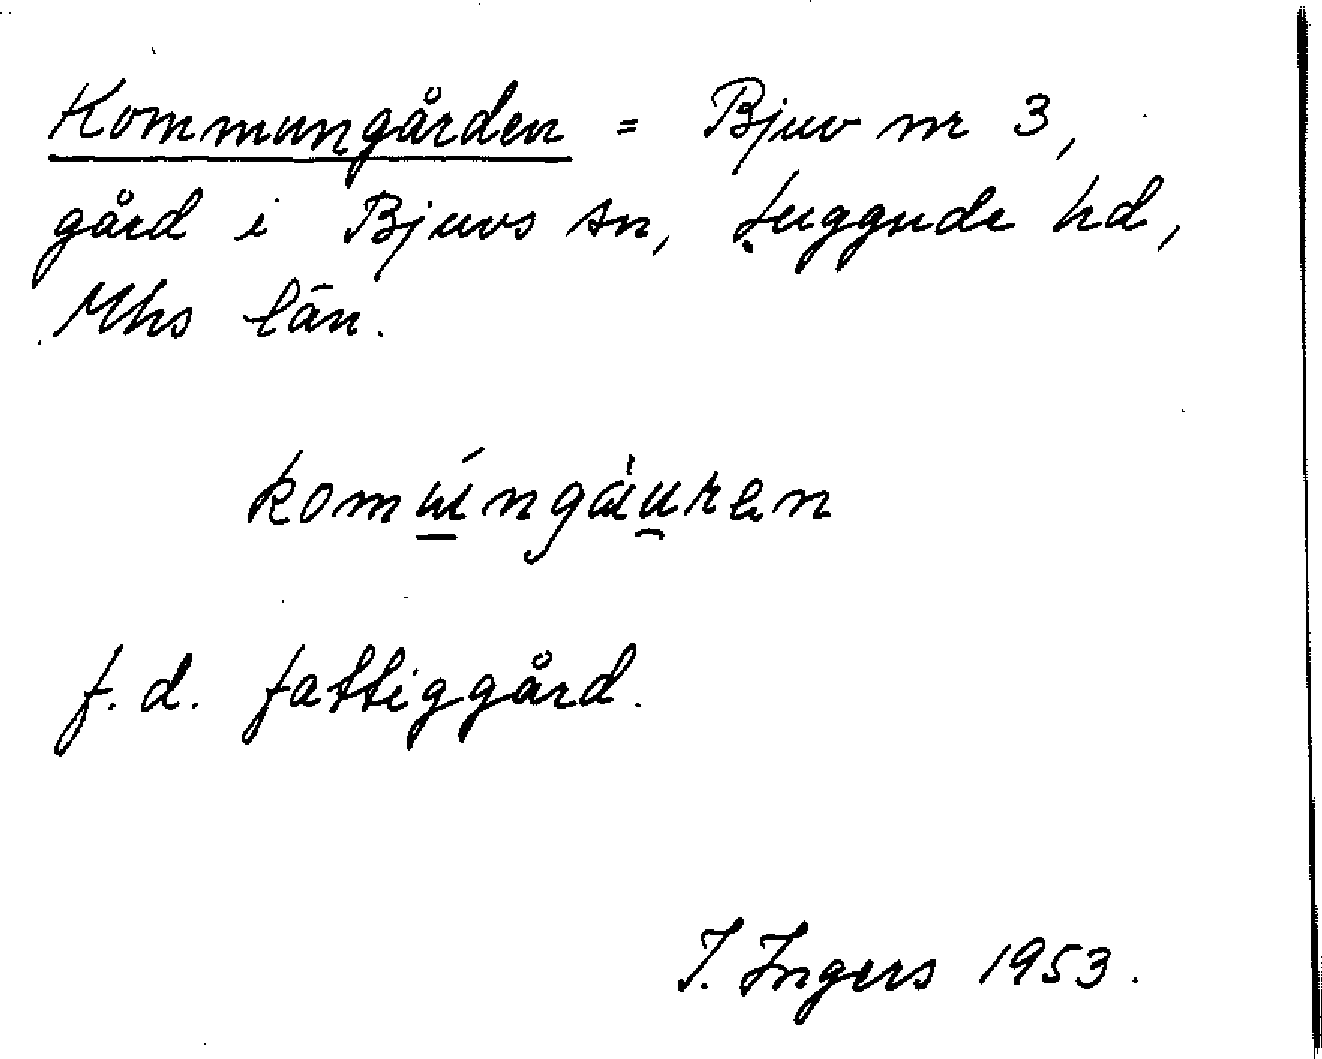 Kommungården = Bjuv nr 3,
gård i Bjuvs sn, Luggude hd,
Mhs län.
komú̲ngáu̯ren
f.d. fattiggård.
I. Ingers 1953.